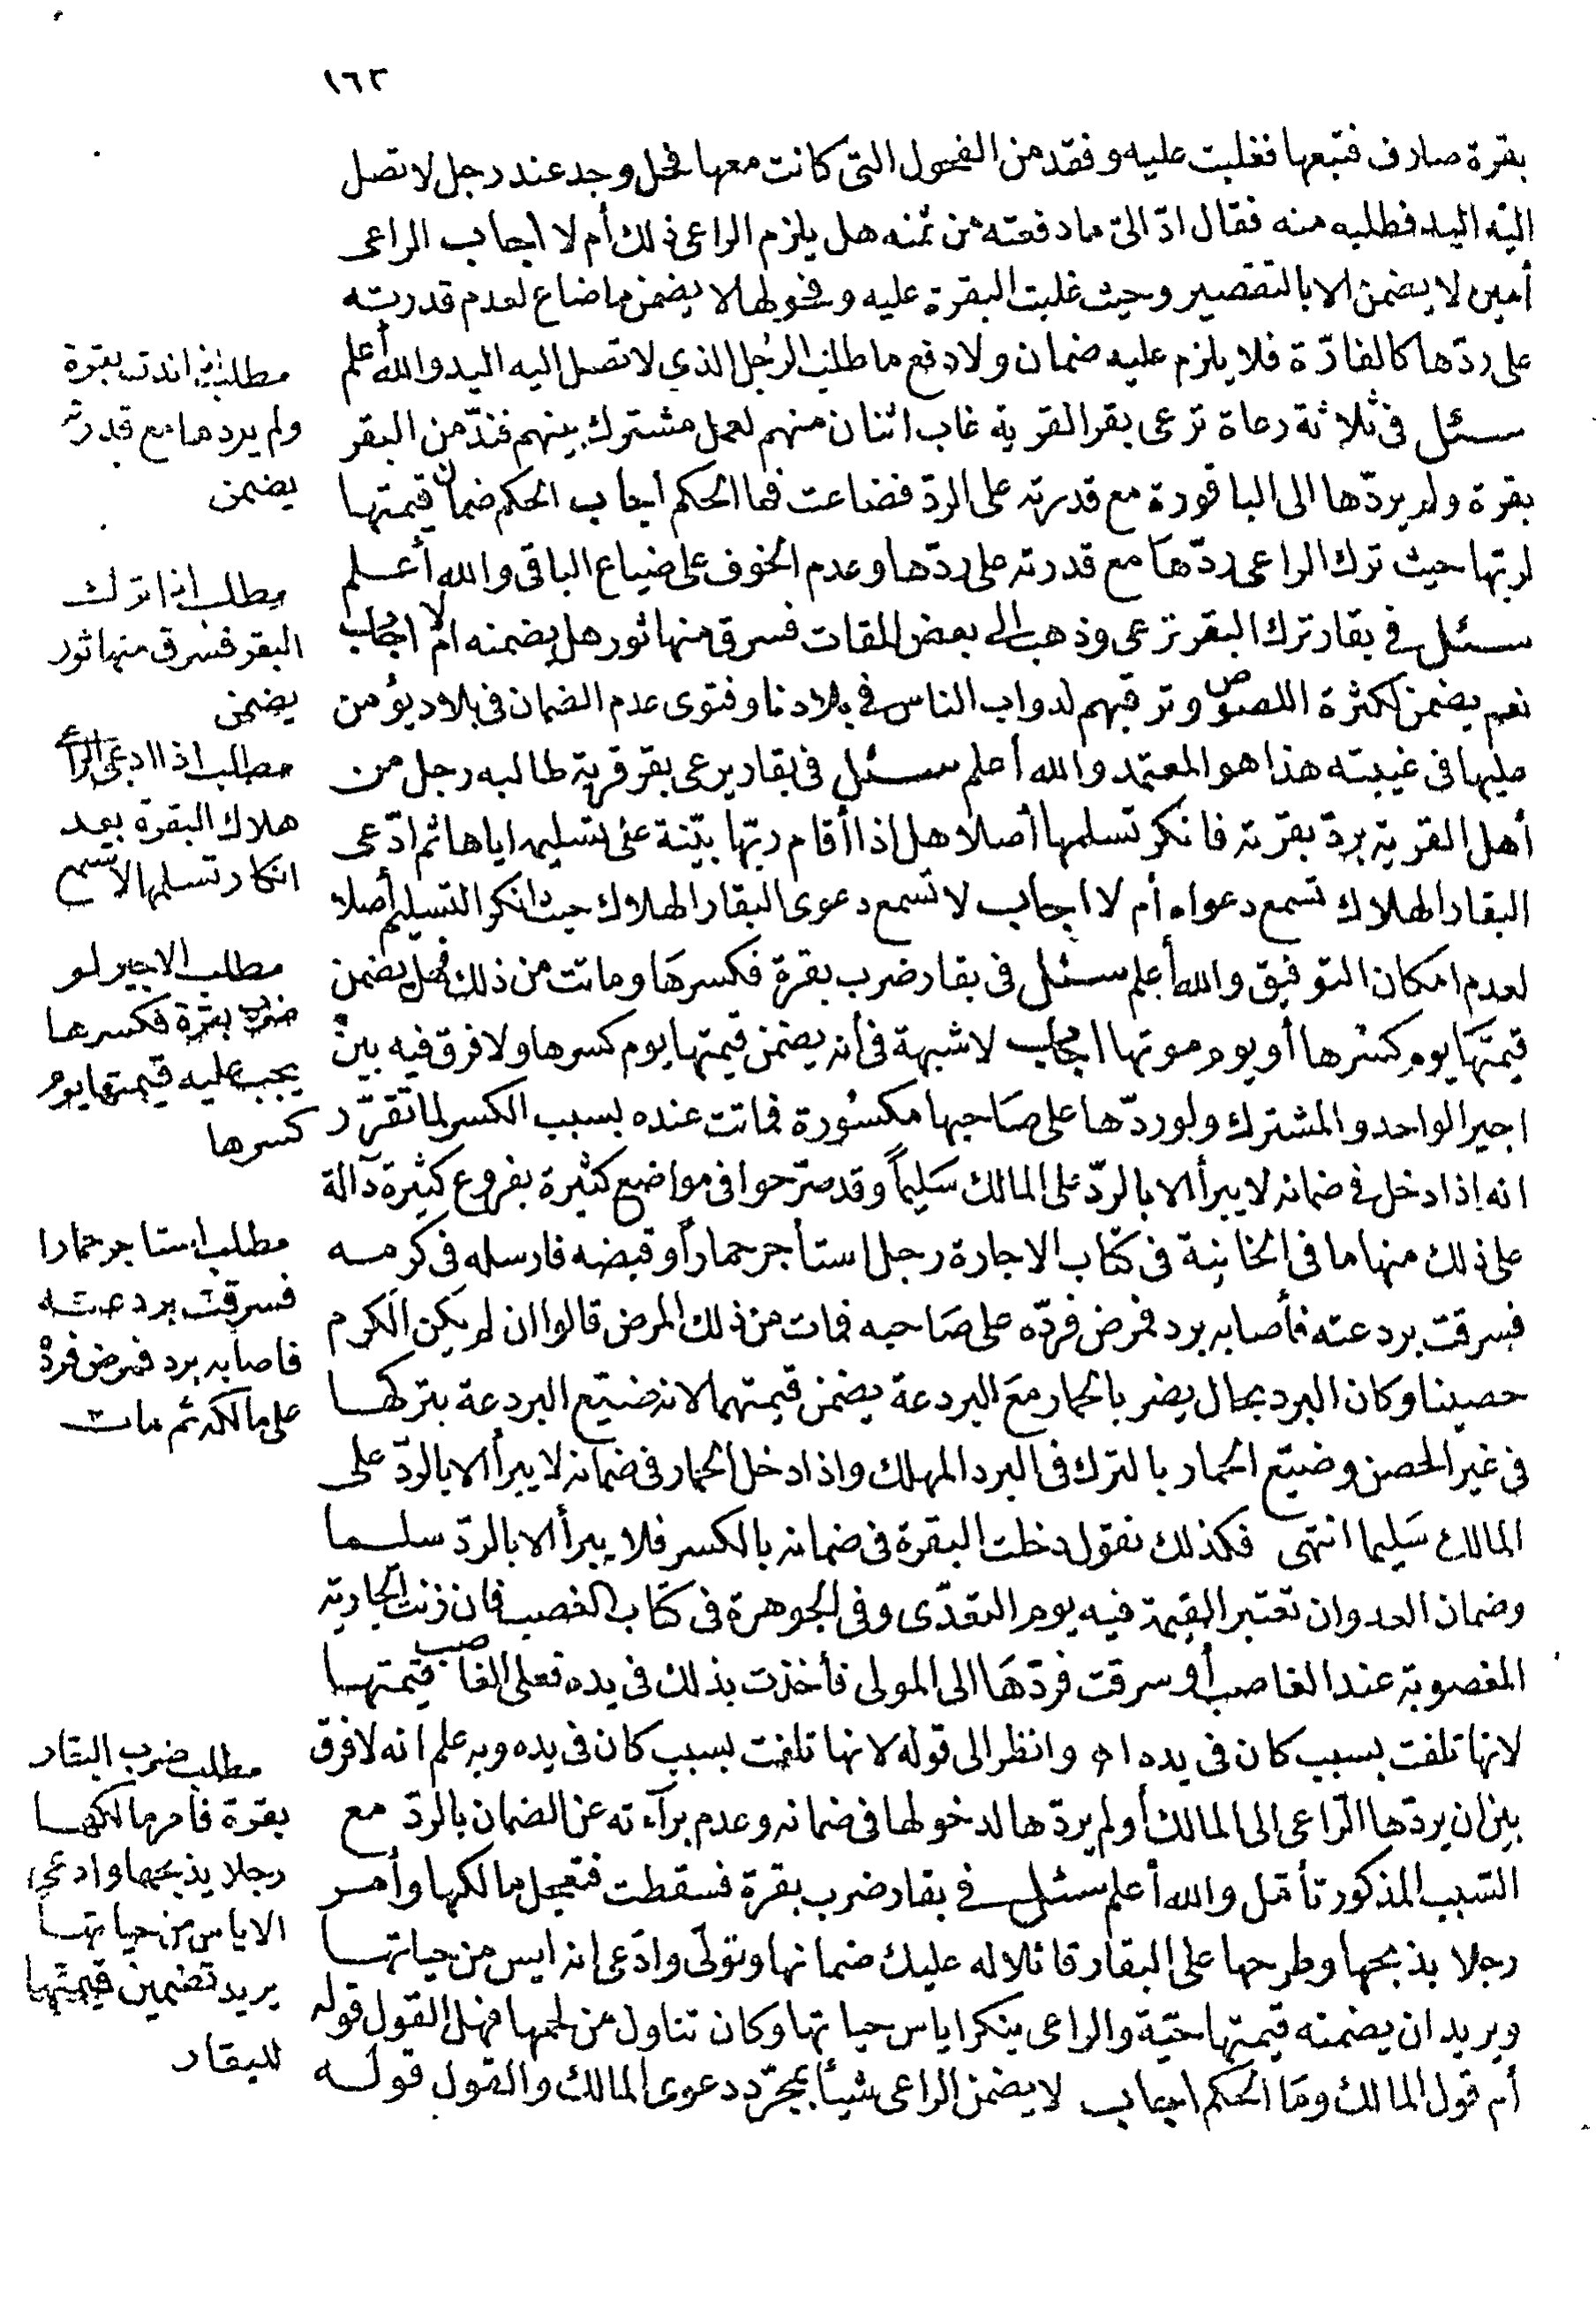 ١٦٣
بقرة صارف فتبعها فغلبت عليه وفقد من الفحول التى كانت معها فحل وجد عند رجل لا تصل
اليه اليد فطلبه منه فقال ادّ الىّ ما دفعته من ثمنه هل يلزم الراعى ذلك أم لا اجاب الراعى
أمين لا يضمن الا بالتقصير وحيث غلبت البقرة عليه وفحولها لا يضمن ما ضاع لعدم قدرته
على ردّها كالفارّة فلا يلزم عليه ضمان ولا دفع ما طلب الرجل الذى لا تصل اليه اليد والله أعلم
سئل فى ثلاثة رعاة ترعى بقر القرية غاب اثنان منهم لعمل مشترك بينهم فندّ من البقر
بقرة ولم يردّها الى الباقورة مع قدرته على الردّ فضاعت فما الحكم اجاب الحكم ضمان قيمتها
لربّها حيث ترك الراعى ردّها مع قدرته على ردّها وعدم الخوف على ضياع الباقى والله أعلم
سئل فى بقار ترك البقر ترعى وذهب الى بعض المقات فسرق منها ثور هل يضمنه ام لا اجاب
نعم يضمن لكثرة اللصوص وترقبهم لدواب الناس فى بلادنا وفتوى عدم الضمان فى بلاد يؤمن
عليها فى غيبته هذا هو المعتمد والله أعلم سئل فى بقار يرعى بقر قرية طالبه رجل من
أهل القرية بردّ بقرته فانكر تسلمها أصلا هل اذا أقام ربّها بيّنة على تسليمه اياها ثم ادّعى
البقار الهلاك تسمع دعواه أم لا اجاب لا تسمع دعوى البقار الهلاك حيث انكر التسليم أصلا
لعدم امكان التوفيق والله أعلم سئل فى بقار ضرب بقرة فكسرها وماتت من ذلك فهل يضمن
قيمتها يوم كسرها أو يوم موتها اجاب لا شبهة فى أنه يضمن قيمتها يوم كسرها ولا فرق فيه بين
اجير الواحد والمشترك ولو ردّها على صاحبها مكسورة فماتت عنده بسبب الكسر لما تقرّر
انه اذا دخل فى ضمانه لا يبرأ الا بالردّ على المالك سليماً وقد صرّحوا فى مواضع كثيرة بفروع كثيرة دآلة
على ذلك منها ما فى الخانية فى كتاب الاجارة رجل استأجر حماراً وقبضه فارسله فى كرمه
فسرقت بردعته فأصابه برد فمرض فردّه على صاحبه فمات من ذلك المرض قالوا ان لم يكن الكرم
حصينا وكان البرد بحال يضر بالحمار مع البردعة يضمن قيمتهما لانه ضيّع البردعة بتركها
فى غير الحصن وضيّع الحمار بالترك فى البرد المهلك واذا دخل الحمار فى ضمانه لا يبرأ الا بالردّ على
المالك سليما انتهى فكذلك نقول دخلت البقرة فى ضمانه بالكسر فلا يبرأ الا بالردّ سليما
وضمان العدوان تعتبر القيمة فيه يوم التعدّى وفى الجوهرة فى كتاب الغصب فان زنت الجارية
المغصوبة عند الغاصب أو سرقت فردّها الى المولى فأخذت بذلك فى يده فعلى الغاصب قيمتها
لانها تلفت بسبب كان فى يده اه وانظر الى قوله لانها تلفت بسبب كان فى يده وبه علم انه لا فرق
بين ان يردّها الراعى الى المالك أو لم يردّها لدخولها فى ضمانه وعدم برآءته عن الضمان بالردّ مع
السبب المذكور تأمّل والله أعلم سئل فى بقار ضرب بقرة فسقطت فتعجل مالكها وأمر
رجلا بذبحها وطرحها على البقار قائلا له عليك ضمانها وتولّى وادّعى انه ايس من حياتها
ويريد ان يضمنه قيمتها حيّة والراعى ينكر اياس حياتها وكان تناول من لحمها فهل القول قوله
أم قول المالك وما الحكم اجاب لا يضمن الراعى شيئاً بمجرّد دعوى المالك والقول قوله
مطلب اندت بقرة
ولم يردها مع قدرته
يضمن
مطلب اذا ترك
البقر فسرق منها ثور
يضمن
مطلب اذا ادعى الراعى
هلاك البقرة بعد
انكار تسلمها لا تسمع
مطلب الاجير لو
ضرب بقرة فكسرها
يجب عليه قيمتها يوم
كسرها
مطلب استاجر حمارا
فسرقت بردعته
فاصابه برد فمرض فردّه
على مالكه ثم مات
مطلب ضرب البقار
بقرة فأمر مالكها
رجلا يذبحها وادعى
الاياس من حياتها
يريد تضمين قيمتها
للبقار